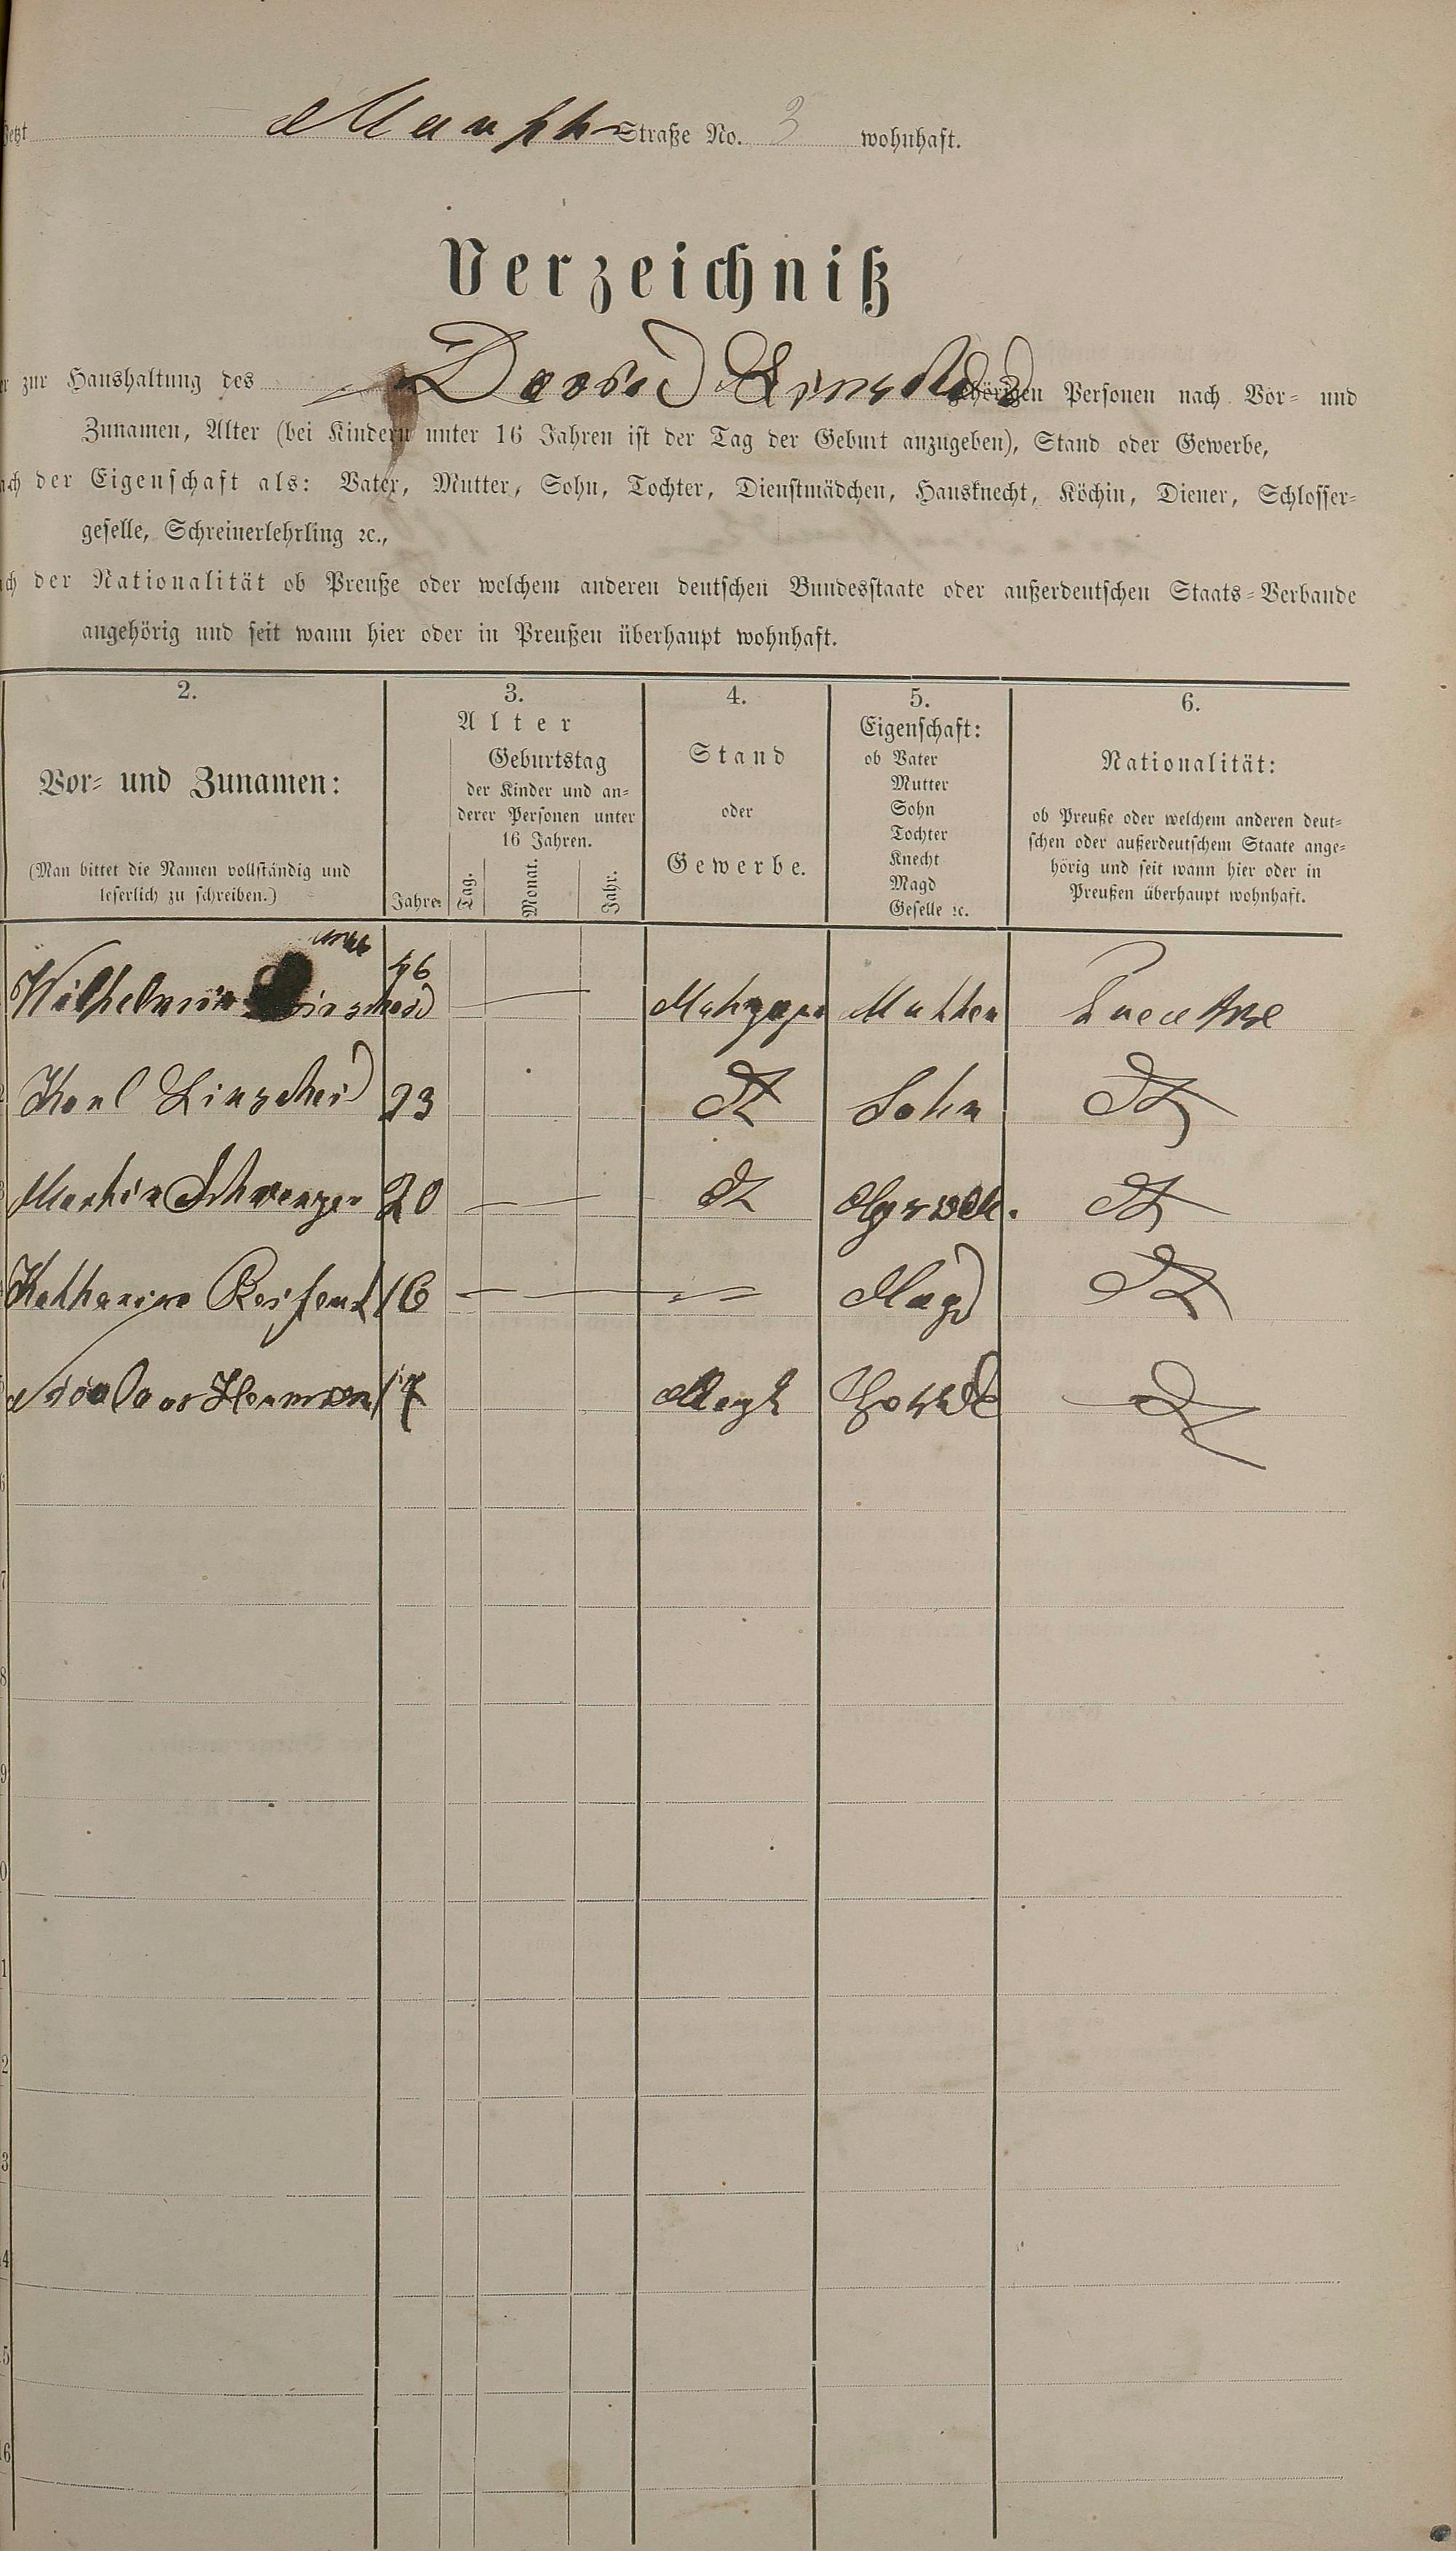 Jetzt Straße No. 3 wohnhaft.
Verzeichniß
zur Haushaltung des David Linscheid gehörigen Personen nach Vor- und
Zunamen, Alter (bei Kindern unter 16 Jahren ist der Tag der Geburt anzugeben), Stand oder Gewerbe,
nach der Eigenschaft als: Vater, Mutter, Sohn, Tochter, Dienstmädchen, Hausknecht, Köchin, Diener, Schlosser-
geselle, Schreinerlehrling ꝛc.,
nach der Nationalität ob Preuße oder welchem anderen deutschen Bundesstaate oder außerdeutschen Staats-Verbande
angehörig und seit wann hier oder in Preußen überhaupt wohnhaft.
2.
Vor- und Zunamen:
(Man bittet die Namen vollständig und
leserlich zu schreiben.)
3.
Alter
Jahre
Geburtstag
der Kinder und an-
derer Personen unter
16 Jahren.
Tag. Monat. Jahr.
4.
Stand
oder
Gewerbe.
5.
Eigenschaft:
ob Vater
Mutter
Sohn
Tochter
Knecht
Magd
Geselle ꝛc.
6.
Nationalität:
ob Preuße oder welchem anderen deut-
schen oder außerdeutschem Staate ange-
hörig und seit wann hier oder in
Preußen überhaupt wohnhaft.
Wilhelmine Linscheid 46 — Mutter Preuße
Karl Linscheid 23 Sohn
Martin Schwenger 20 —
Katharina 16 — Magd
Nicolaus Hermann 17
6
7
8
9
0
1
2
3
4
5
16